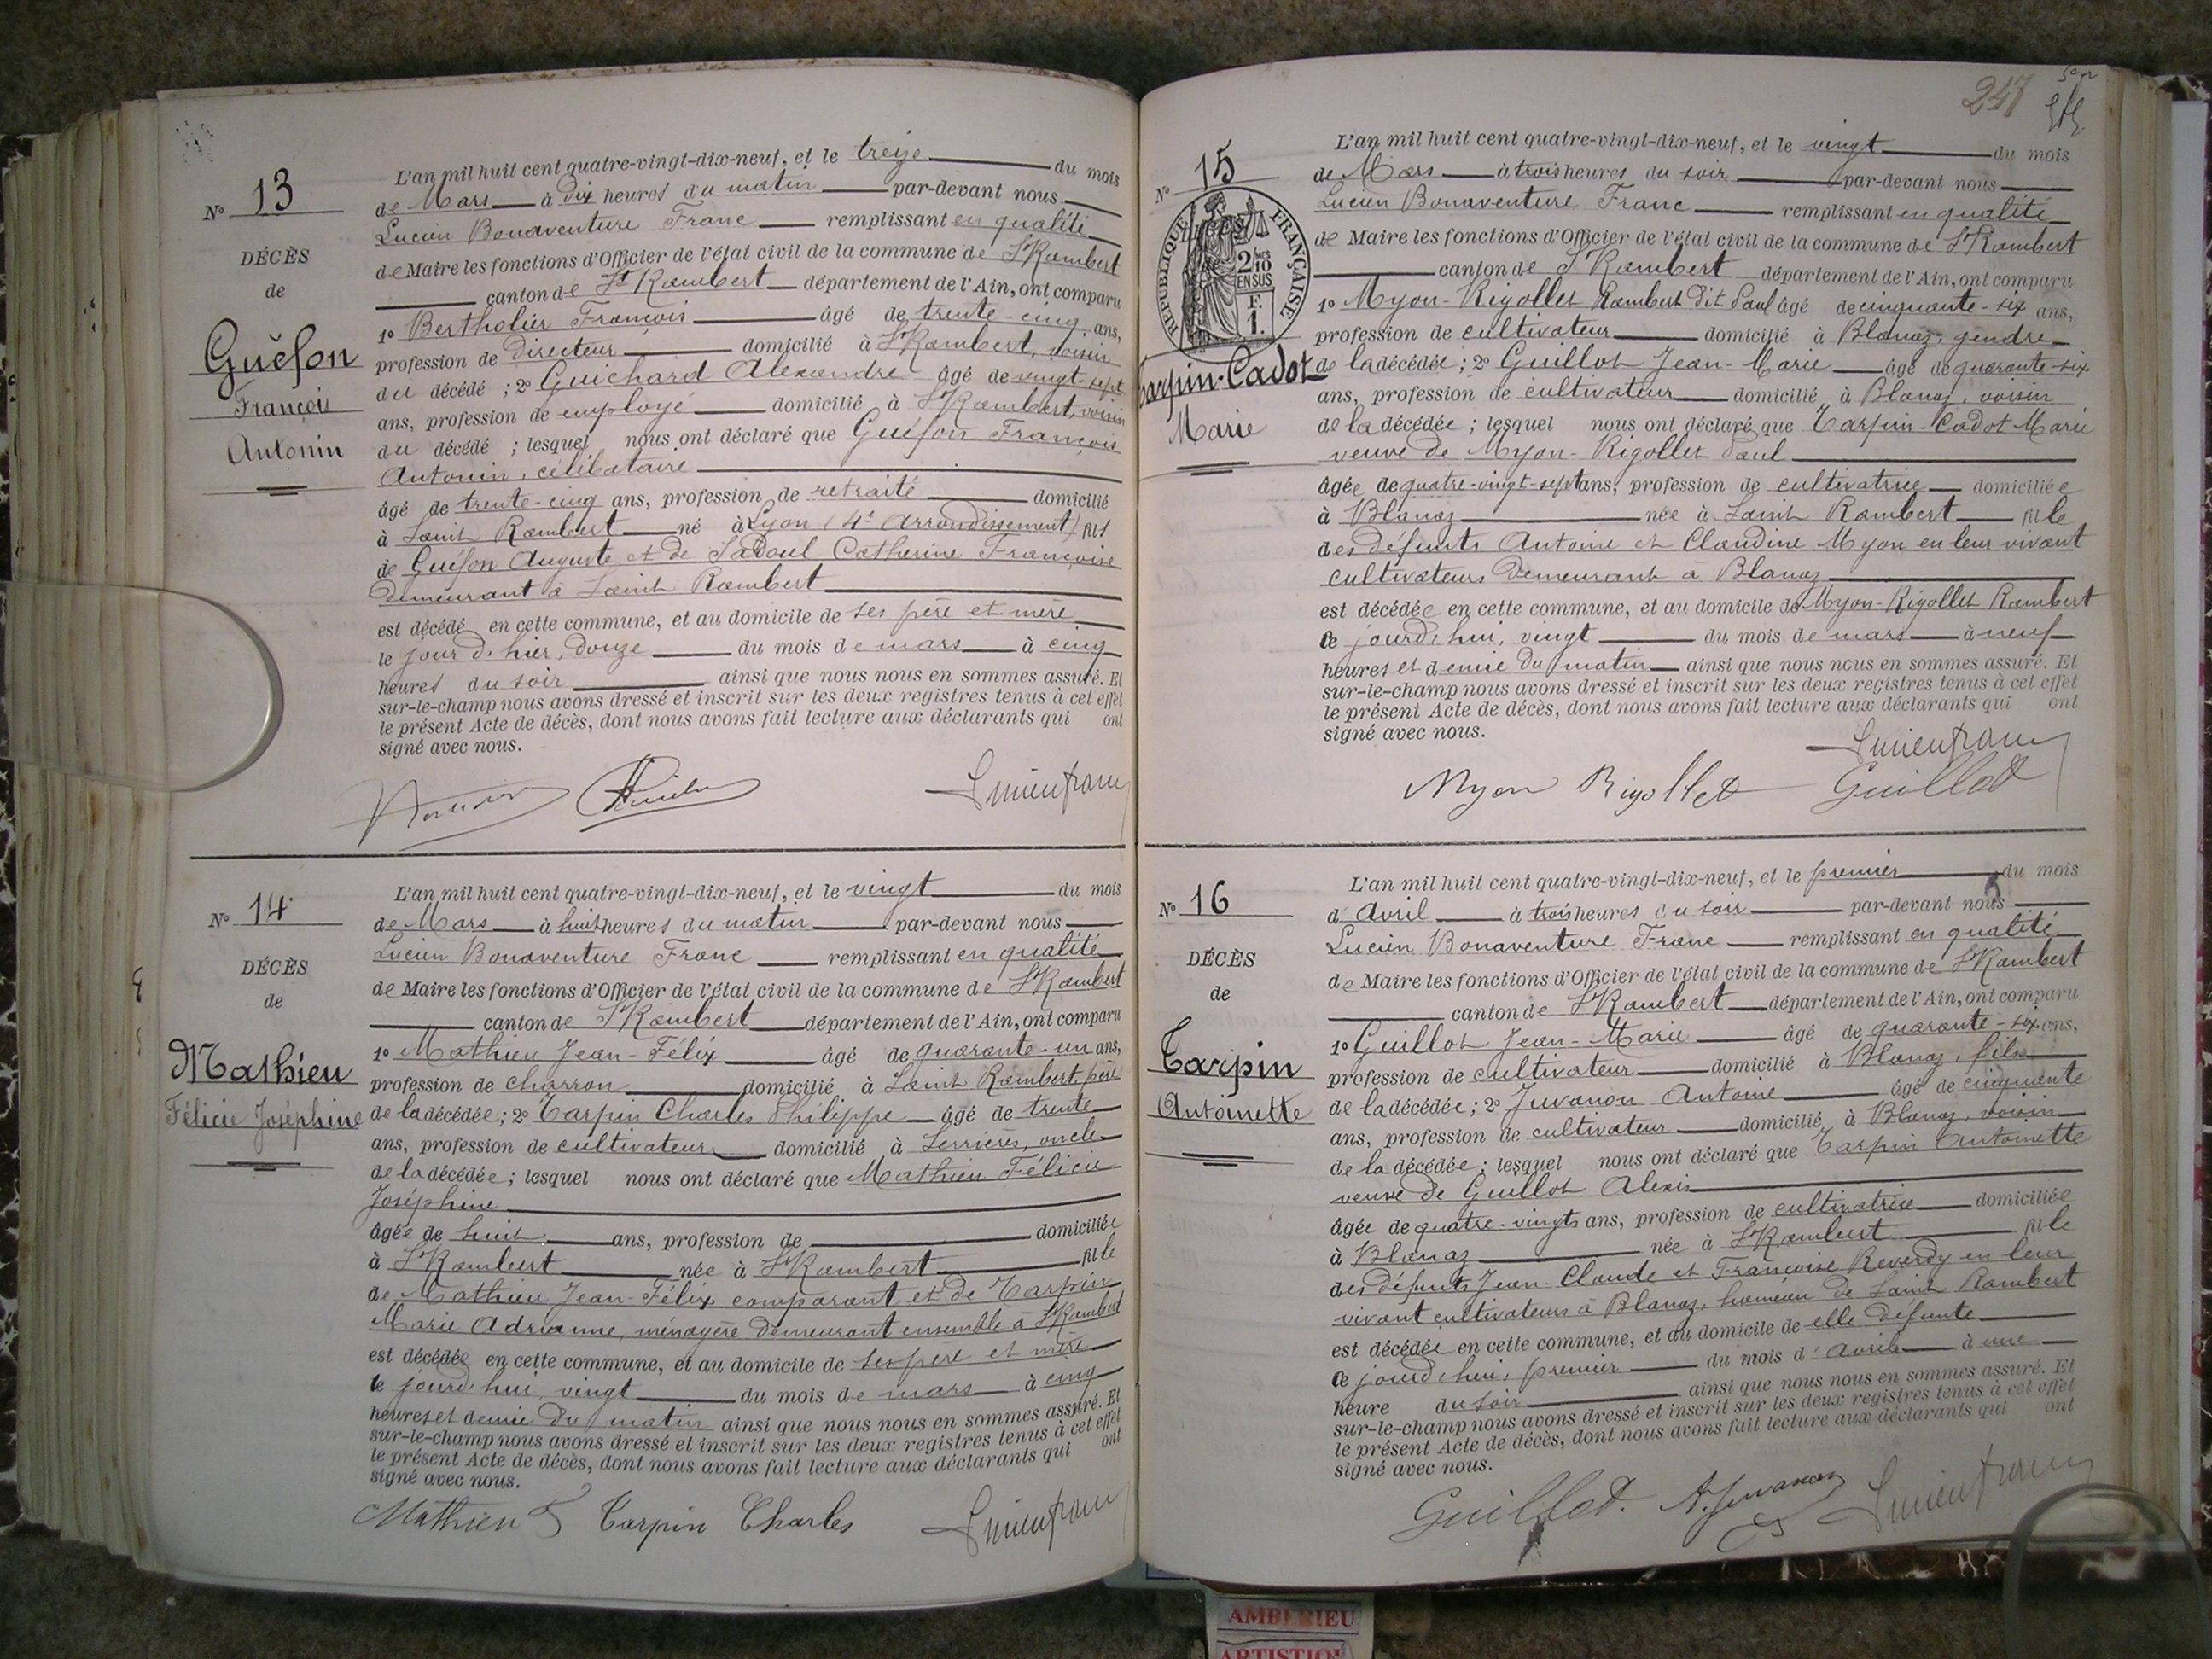 N° 13
DÉCÈS
de
Guéfon
François
Antonin
L'an mil huit cent quatre-vingt-dix-neuf, et le treize du mois
de Mars à dix heures du matin par-devant nous
Lucien Bonaventure Franc remplissant en qualité
de Maire les fonctions d'Officier de l'état civil de la commune de St Rambert
canton de St Rambert département de l'Ain, ont comparu
1° Bertholier François âgé de trente-cinq ans,
profession de directeur domicilié à St Rambert, voisin
du décédé ; 2° Guichard Alexandre âgé de vingt-sept
ans, profession de employé domicilié à St Rambert, voisin
du décédé ; lesquel nous ont déclaré que Guéfon François
Antonin, célibataire
âgé de trente-cinq ans, profession de retraité domicilié
à Saint Rambert né à Lyon (4e Arrondissement) fils
de Guéfon Auguste et de Sadoul Catherine Françoise
demeurant à Saint Rambert
est décédé en cette commune, et au domicile de ses père et mère
le jour d'hier, douze du mois de mars à cinq
heures du soir ainsi que nous nous en sommes assuré. Et
sur-le-champ nous avons dressé et inscrit sur les deux registres tenus à cet effet
le présent Acte de décès, dont nous avons fait lecture aux déclarants qui ont
signé avec nous.
Lucien franc
N° 14
DÉCÈS
de
Mathieu
Félicie Joséphine
L'an mil huit cent quatre-vingt-dix-neuf, et le vingt du mois
de Mars à huit heures du matin par-devant nous
Lucien Bonaventure Franc remplissant en qualité
de Maire les fonctions d'Officier de l'état civil de la commune de St Rambert
canton de St Rambert département de l'Ain, ont comparu
1° Mathieu Jean-Félix âgé de quarante-un ans,
profession de charron domicilié à Saint Rambert, père
de la décédée ; 2° Tarpin Charles Philippe âgé de trente
ans, profession de cultivateur domicilié à Serrières, oncle
de la décédée ; lesquel nous ont déclaré que Mathieu Félicie
Joséphine
âgée de huit ans, profession de domiciliée
à St Rambert née à St Rambert fille
de Mathieu Jean-Félix comparant et de Tarpin
Marie Adrianne, ménagère demeurant ensemble à St Rambert
est décédée en cette commune, et au domicile de ses père et mère
le jourd'hui, vingt du mois de mars à cinq
heures et demie du matin ainsi que nous nous en sommes assuré. Et
sur-le-champ nous avons dressé et inscrit sur les deux registres tenus à cet effet
le présent Acte de décès, dont nous avons fait lecture aux déclarants qui ont
signé avec nous.
Mathieu Tarpin Charles Lucien franc
247
N° 15
RÉPUBLIQUE FRANÇAISE
2/10 EN SUS
F. 1.
Tarpin-Cadot
Marie
L'an mil huit cent quatre-vingt-dix-neuf, et le vingt du mois
de Mars à trois heures du soir par-devant nous
Lucien Bonaventure Franc remplissant en qualité
de Maire les fonctions d'Officier de l'état civil de la commune de St Rambert
canton de St Rambert département de l'Ain, ont comparu
1° Myon-Rigollet Rambert dit Paul âgé de cinquante-six ans,
profession de cultivateur domicilié à Blanaz, gendre
de la décédée ; 2° Guillot Jean-Marie âgé de quarante-six
ans, profession de cultivateur domicilié à Blanaz, voisin
de la décédée ; lesquel nous ont déclaré que Tarpin-Cadot Marie
veuve de Myon-Rigollet Paul
âgée de quatre-vingt-sept ans, profession de cultivatrice domiciliée
à Blanaz née à Saint Rambert fille
des défunts Antoine et Claudine Myon en leur vivant
cultivateurs demeurant à Blanaz
est décédée en cette commune, et au domicile de Myon-Rigollet Rambert
ce jourd'hui, vingt du mois de mars à neuf
heures et demie du matin ainsi que nous nous en sommes assuré. Et
sur-le-champ nous avons dressé et inscrit sur les deux registres tenus à cet effet
le présent Acte de décès, dont nous avons fait lecture aux déclarants qui ont
signé avec nous.
Lucien franc
Myon Rigollet Guillot
N° 16
DÉCÈS
de
Tarpin
Antoinette
L'an mil huit cent quatre-vingt-dix-neuf, et le premier du mois
d'Avril à trois heures du soir par-devant nous
Lucien Bonaventure Franc remplissant en qualité
de Maire les fonctions d'Officier de l'état civil de la commune de St Rambert
canton de St Rambert département de l'Ain, ont comparu
1° Guillot Jean-Marie âgé de quarante-six ans,
profession de cultivateur domicilié à Blanaz, fils
de la décédée ; 2° Juvanon Antoine âgé de cinquante
ans, profession de cultivateur domicilié à Blanaz, voisin
de la décédée ; lesquel nous ont déclaré que Tarpin Antoinette
veuve de Guillot Alexis
âgée de quatre-vingts ans, profession de cultivatrice domiciliée
à Blanaz née à St Rambert fille
des défunts Jean-Claude et Françoise Reverdy en leur
vivant cultivateurs à Blanaz, hameau de Saint Rambert
est décédée en cette commune, et au domicile de elle défunte
ce jourd'hui, premier du mois d'avril à une
heure du soir ainsi que nous nous en sommes assuré. Et
sur-le-champ nous avons dressé et inscrit sur les deux registres tenus à cet effet
le présent Acte de décès, dont nous avons fait lecture aux déclarants qui ont
signé avec nous.
Guillot. A. Juvanon Lucien franc
AMBERIEU